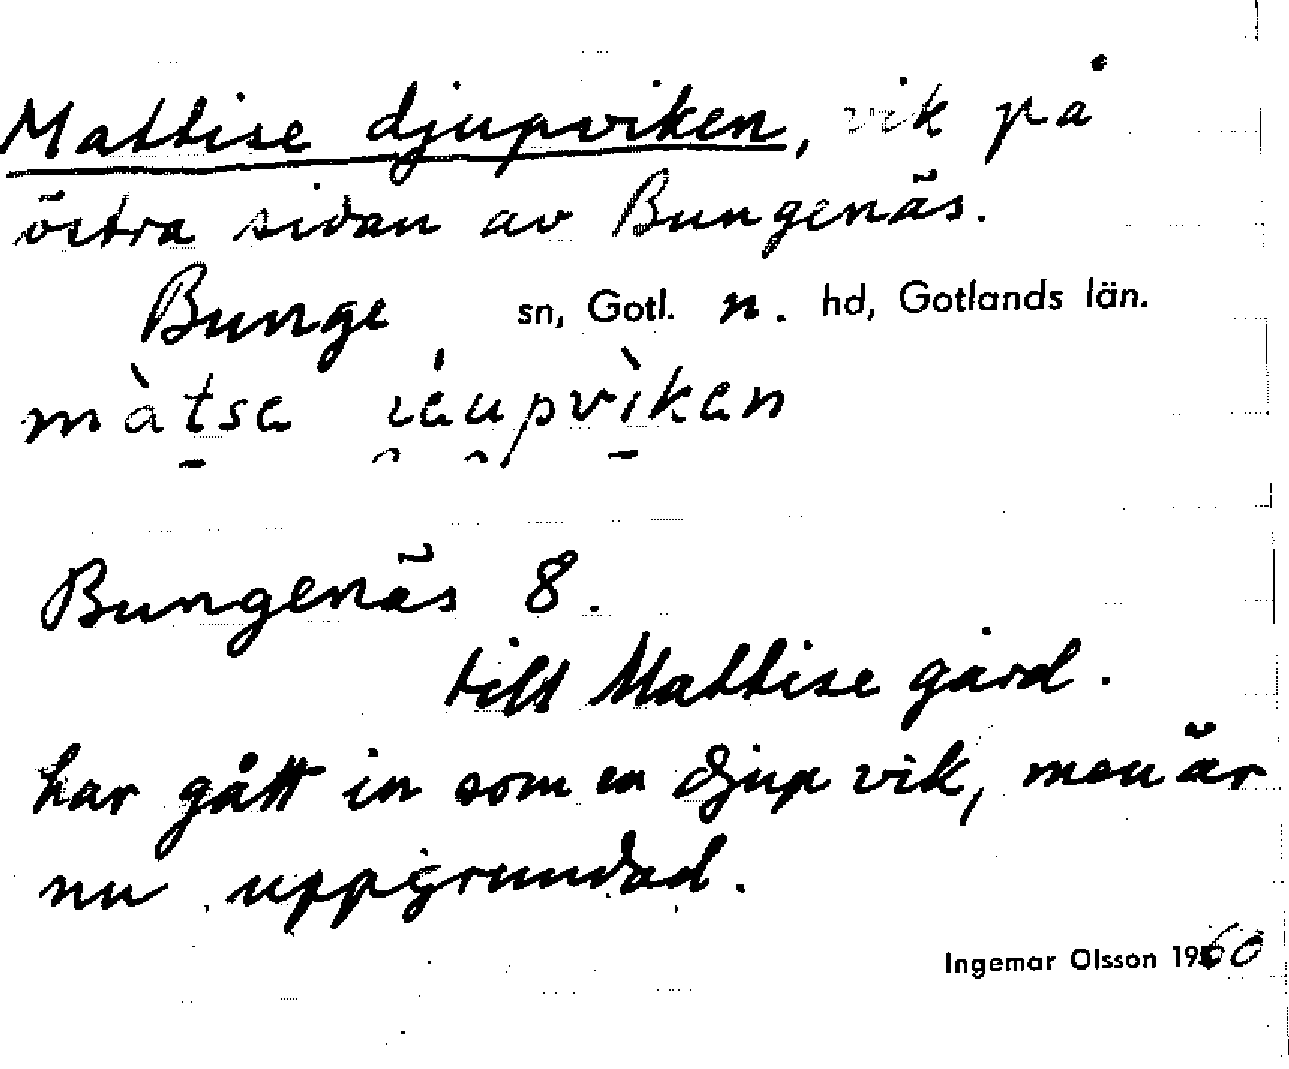 Mattise djupviken, vik på
östra sidan av Bungenäs.
Bunge sn, Gotl. n. hd, Gotlands län.
Bungenäs 8.
till Mattise gård.
har gått in som en djup vik, men är
nu uppgrundad.
Ingemar Olsson 1960